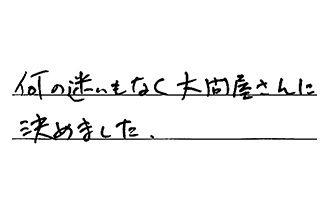 何の迷いもなく大問屋さんに
決めました.